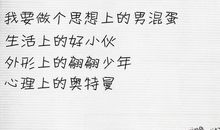 我要做个思想上的男混蛋
生活上的好小伙
外形上的翩翩少年
心理上的奥特曼